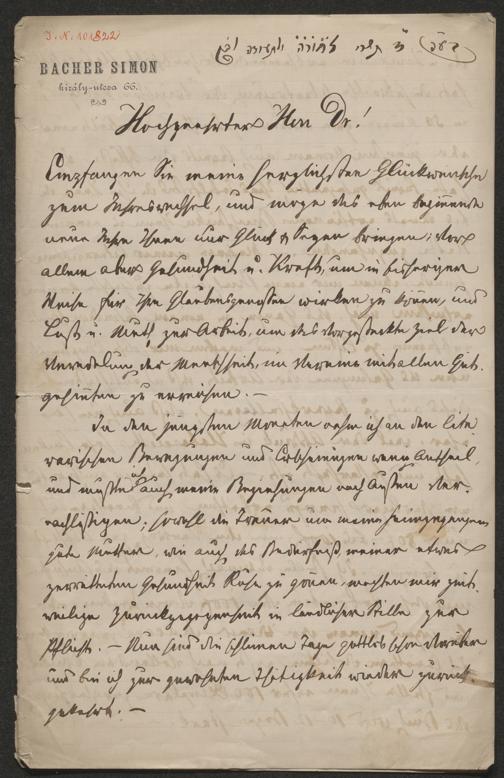 I. N. 101822
BACHER SIMON
király-utcza 66.
Hochgeehrter Herr Dr!
Empfangen Sie meine herzlichsten Glückwünsche
zum Jahreswechsel, und möge das eben beginnende
neue Jahr Ihnen nur Glück & Segen bringen; vor
allem aber Gesundheit u. Kraft, um in bisheriger
Weise für Ihre Glaubensgenossen wirken zu können, und
Lust u. Muth zur Arbeit, um das vorgesteckte Ziel der
Veredelung der Menschheit, im Vereine mit allen Gut-
gesinnten zu erreichen. —
In den jüngsten Monaten nahm ich an den lite
rarischen Bewegungen und Erscheinungen wenig Antheil,
und mußte auch meine Beziehungen nach Außen ver-
nachlässigen; sowohl die Trauer um meine heimgegangene
gute Mutter, wie auch das Bedürfniß meiner etwas
zerrütteten Gesundheit Ruhe zu gönnen, machten mir zeit-
weilige Zurückgezogenheit in ländlicher Stille zur
Pflicht. — Nun sind die schlimmen Tage gottlob schon vorüber
und bin ich zur gewohnten Thätigkeit wieder zurück-
gekehrt. —